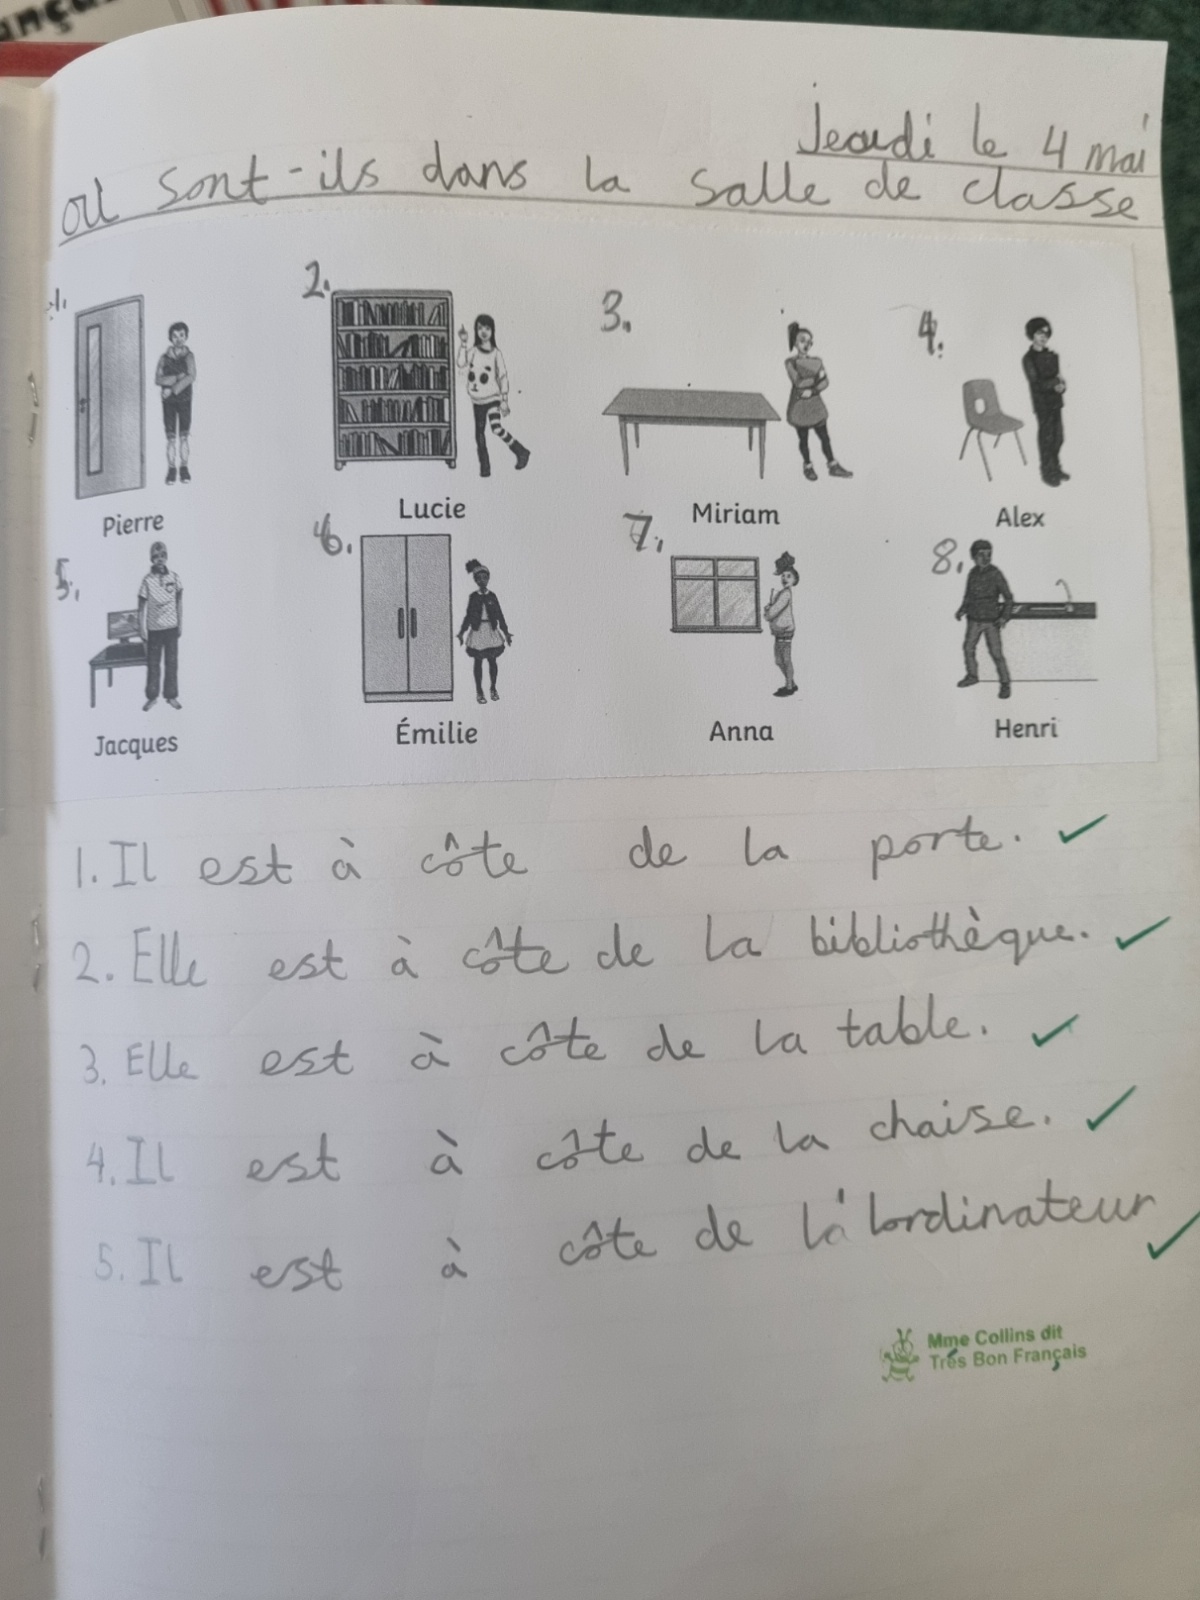 Jeudi le 4 mai
où sont-ils dans la salle de classe
1.
2.
3.
4.
Pierre
Lucie
Miriam
Alex
5.
6.
7.
8.
Jacques
Émilie
Anna
Henri
1. Il est à côte de la porte.
2. Elle est à côte de la bibliothèque.
3. Elle est à côte de la table.
4. Il est à côte de la chaise.
5. Il est à côte de la' lordinateur
Mme Collins dit
Trés Bon Français